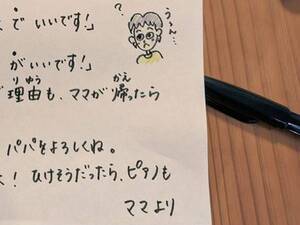 でいいです!」
? うぅん…
がいいです!」
理由も、ママが帰ったら
りゆう かえ
パパをよろしくね。
！ひけそうだったら、ピアノも
ママより